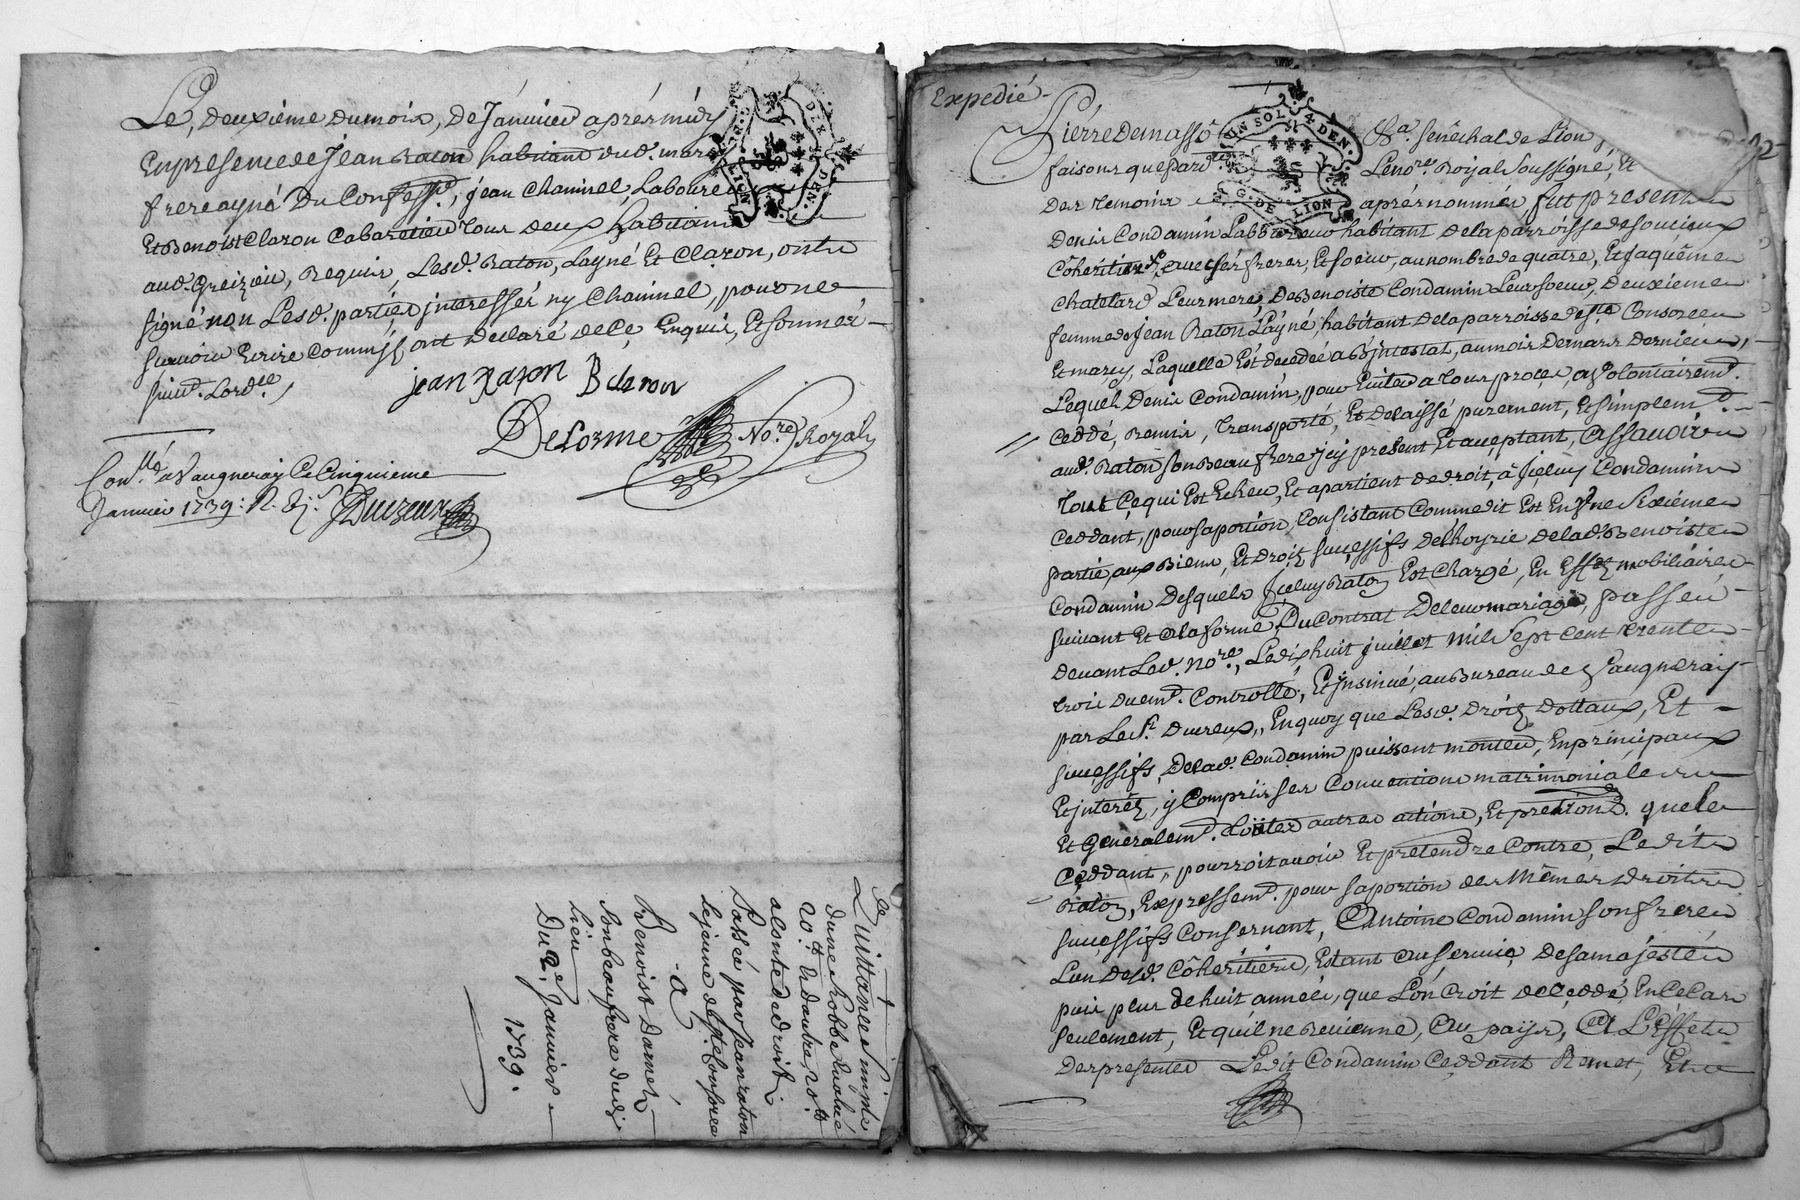 Le deuxième du mois, de Janvier aprés midy
En presence de Jean Raton habitant dud. marcy
frere ayné Du Confess.t, jean Chaninel, Laboureur
Et Benoist Claron Cabaretier tous deux habitans
aud. Greizieu, Requis, Lesd. Raton, Layné Et Claron, ont
signé non Lesd. parties jnteressés ny Chaninel, pour ne
scavoir Ecrire comme ils ont declaré de Ce Enquis, Et sommés
suiv.t Lord.ce,
jean raton B claron
Delorme No.re Royal
Con.llé a Vaugneray Ce Cinquieme
Janvier 1739: R.
Ducreux
UN SOL 4 DEN.
G. DE LION
DIX DEN.
G. D. LION
Quittance
d'une Robbe Evalué
20.tt & d'autre, 20.tt
a conte de droit
Passé par Jean raton
le jeune de S.te Consorce
a
Benoist Darnet
son beaufrere dud.
lieu
Du 2.e Janvier
1739.
Expedié
Pierre de masso S.a senêchal de Lion
faisons que Par d.t Le no.re Royal soussigné, Et
des temoins aprés nommés fut present
Denis Condamin Labboureur habitant de la parroisse de soucieux
Côheritier, avec ses freres, Et soeur, au nombre de quatre, Et Jaquême
Chatelard Leur mere, De Benoiste Condamin Leur soeur, Deuxieme
femme de Jean Raton Layné, habitant de la parroisse de S.te Consorce
Et marcy, Laquelle Est decedée ab jntestat, au mois de mars dernier,
Lequel, Denis Condamin, pour Eviter a tous procés, a Volontairem.t
Ceddé, Remis, transporté, Et delaissé purement, Et simplem.t
aud. Raton son Beaufrere jcy present Et aceptant, Assavoir
tout Ce qui Est Echeu, Et apartient de droit, â Jceluy Condamin
Ceddant, pour sa portion, Consistant Comme dit Est En Une sixiéme
partie, aux Biens, Et droiz sucessifs de Lhoyrie de lad. Benoiste
Condamin Desquels Jceluy Raton Est Chargé, En Effetz mobiliaires
suivant Et a la forme, Du Contrat De leur mariage, passé
devant Led. No.re, Le dix huit juillet mil sept Cent trente
trois duem.t Controllé, Et Insinué, au Bureau de Vaugneray
par Le S.r Ducreux, En quoy que Lesd. Droiz Dottaux, Et
sucessifs, De lad. Condamin puissent monter, En principaux
Et jnterêz, y Compris ses Conventions matrimoniales
Et Generalem.t toutes autres actions, Et pretions. que le
Ceddant, pourroit avoir Et prétendre Contre, Ledit
Raton, Expressem.t pour sa portion des Mêmes droits
sucessifs Consernant, Antoine Condamin son frere
Lun desd. Côheritiers, Estant au service de sa majesté
puis plus de huit années, que L'on Croit decedé, En Ce Cas
seulement, Et qu'il ne Revienne, Au païs, A L'Effet
Des presentes Ledit Condamin Ceddant Remet, Et